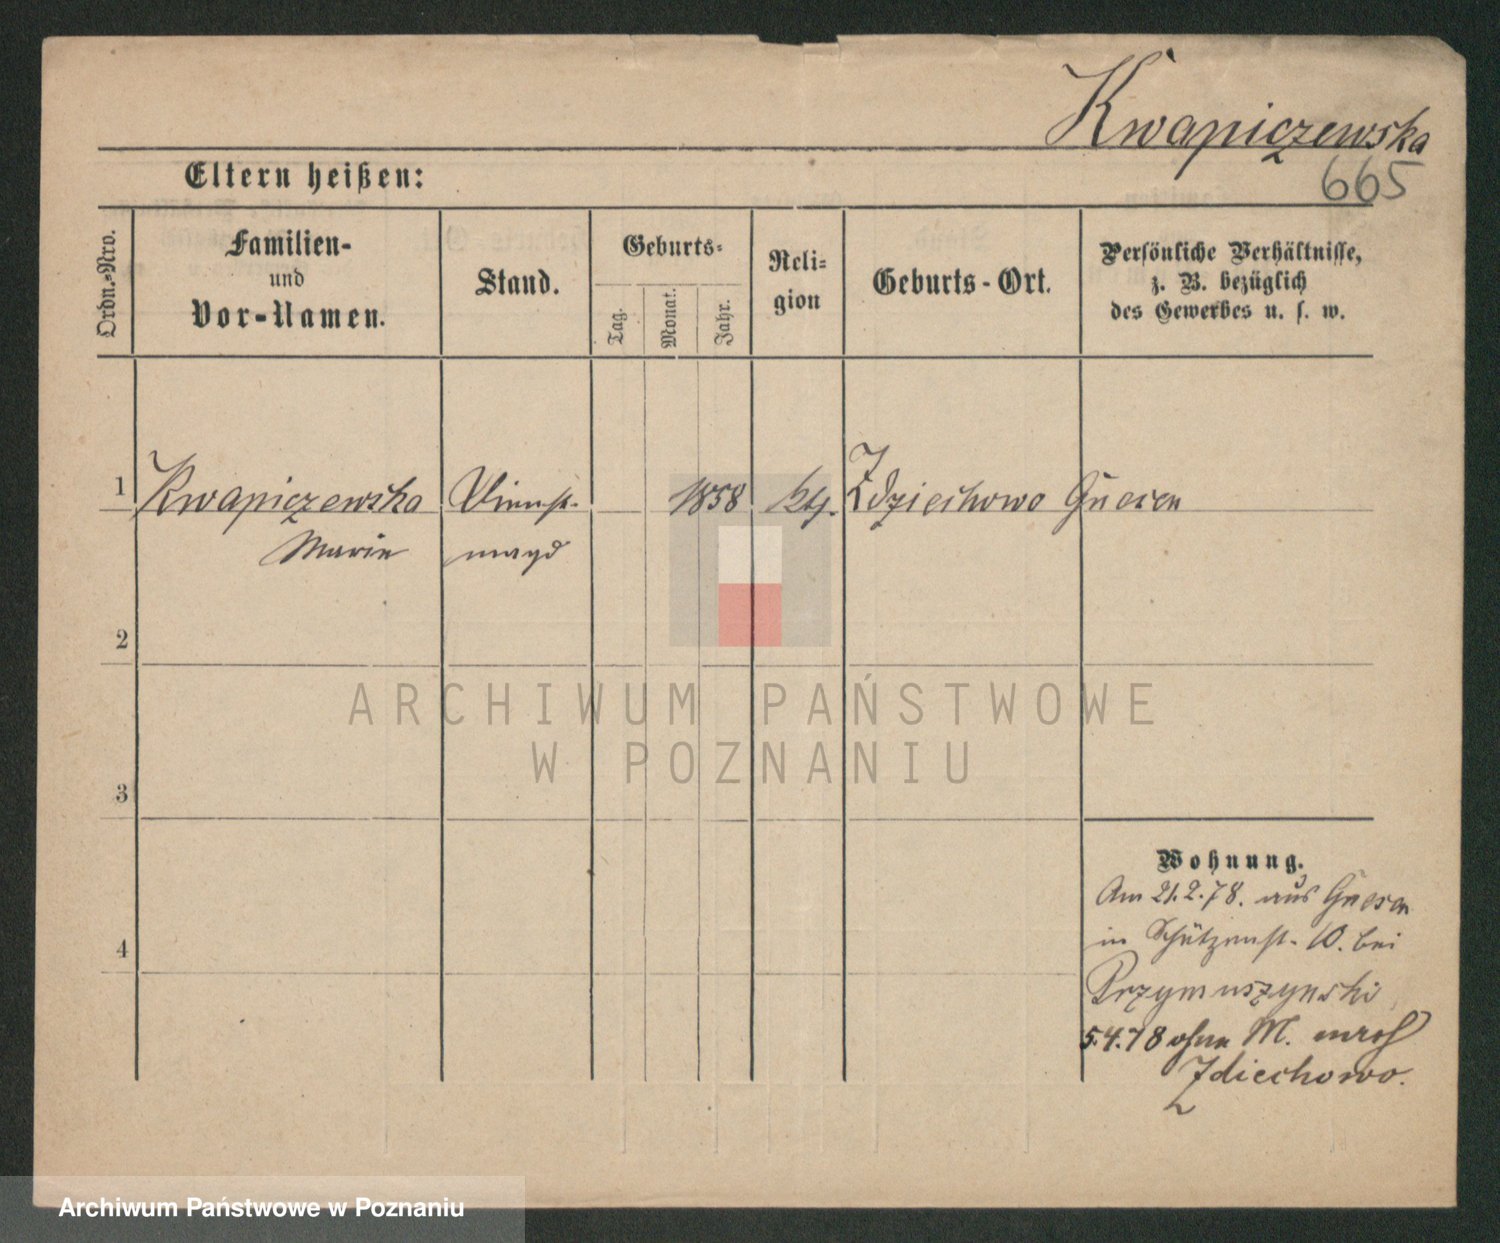 Kwapiczewska
665
Eltern heißen:
Ordn.-Nro.
Familien-
und
Vor-Namen.
Stand.
Geburts-
Tag.
Monat.
Jahr.
Reli-
gion
Geburts-Ort.
Persönliche Verhältnisse,
z. B. bezüglich
des Gewerbes u. s. w.
1 Kwapiczewska Dienst- 1858 kth. Zdziechowo Gnesen
Marie magd
2
3
4
Wohnung.
Am 21.2.78. aus Gnesen
in Schützenst. 10. bei
Przymuszynski
5.4.78 ohne M. nach
Zdiechowo.
ARCHIWUM PAŃSTWOWE
W POZNANIU
Archiwum Państwowe w Poznaniu